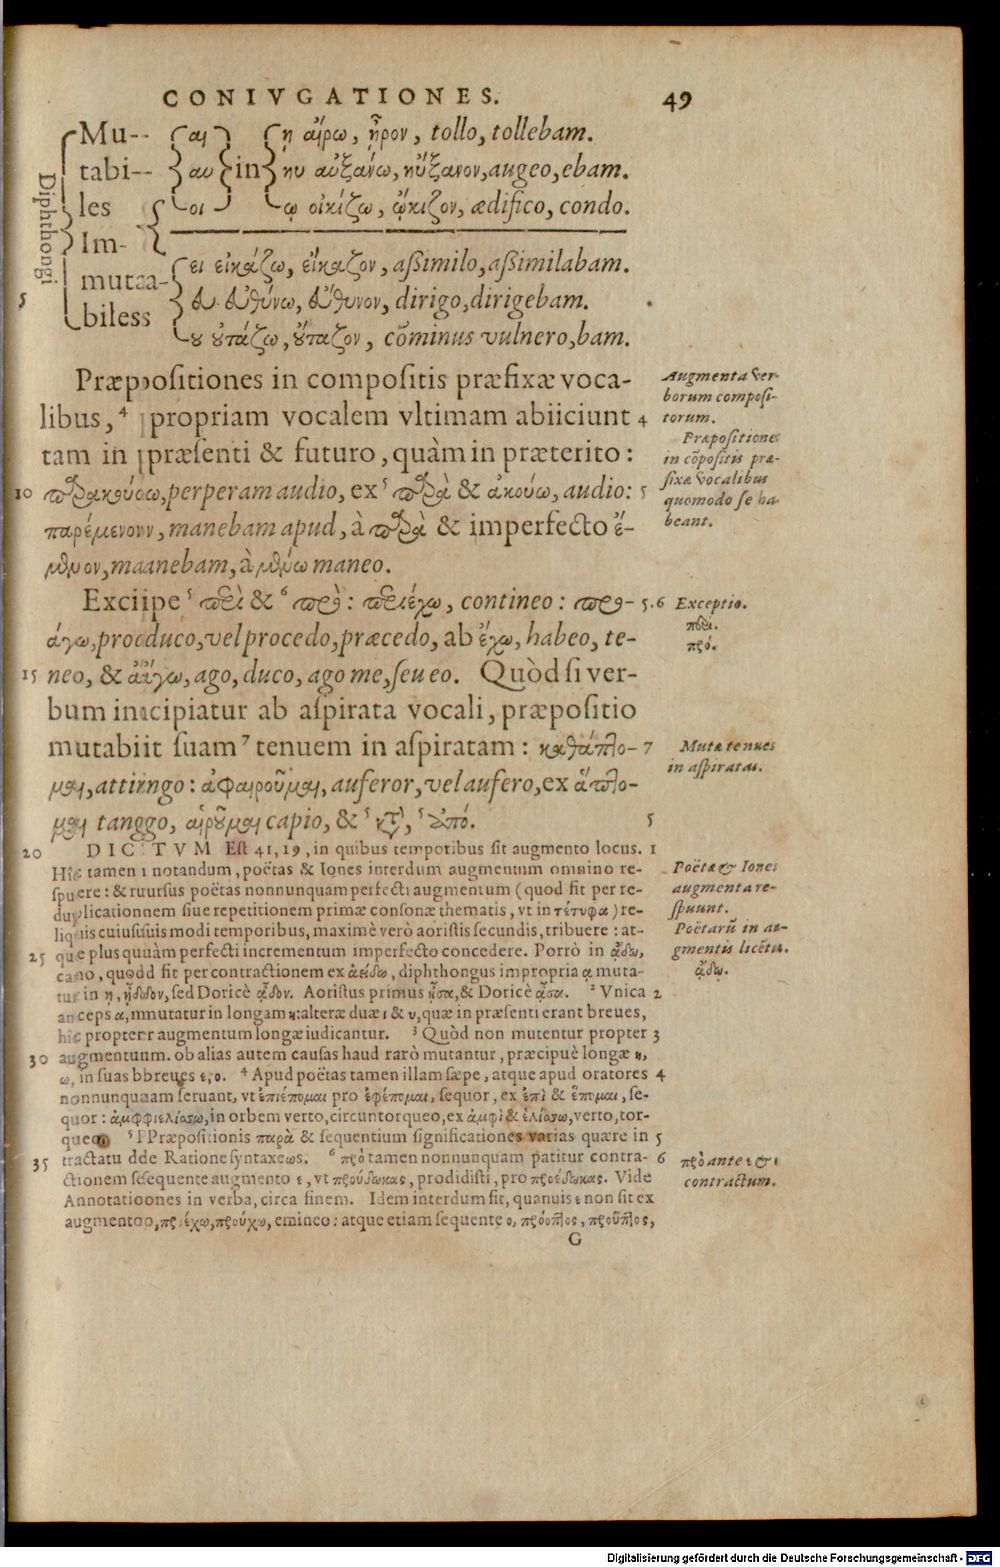 CONIVGATIONES. 49
Diphthongi
Mu-- αι η αἴρω, ἦρον, tollo, tollebam.
tabi-- αυ in ηυ αὐξάνω, ηὔξανον, augeo, ebam.
les οι ῳ οἰκίζω, ᾤκιζον, ædifico, condo.
Im-
mutaa- ει εἰκάζω, εἴκαζον, aßimilo, aßimilabam.
5 ευ εὐθύνω, εὔθυνον, dirigo, dirigebam.
biless
ου οὐτάζω, οὔταζον, cõminus vulnero, bam.
Præpositiones in compositis præfixæ voca-
libus, 4 propriam vocalem vltimam abiiciunt 4
tam in præsenti & futuro, quàm in præterito:
10 παρακούσω, perperam audio, ex 5 παρὰ & ἀκούω, audio: 5
παρέμενονν, manebam apud, à παρὰ & imperfecto ἔ-
μενον, maanebam, à μένω maneo.
Augmenta ver-
borum composi-
torum.
Præpositiones
in cõpositis præ-
fixæ vocalibus
quomodo se ha-
beant.
Exciipe 5 περὶ & 6 πρὸ: περιέχω, contineo: προ- 5.6
άγω, procduco, vel procedo, præcedo, ab ἔχω, habeo, te-
15 neo, & ἄγω, ago, duco, ago me, seu eo. Quòd si ver-
bum inicipiatur ab aspirata vocali, præpositio
mutabiit suam 7 tenuem in aspiratam: καθάπτο- 7
μαι, attirngo: ἀφαιροῦμαι, auferor, vel aufero, ex ἅπτο-
μαι tanggo, αἱροῦμαι capio, & 5 κατὰ, 5 ἀπό. 5
Exceptio.
περί.
πρό.
Mutæ tenues
in aspiratas.
20 DICTVM Est 41, 19, in quibus temporibus sit augmento locus. 1
Hic tamen 1 notandum, poëtas & Iones interdum augmentum omnino re-
spuere: & ruursus poëtas nonnunquam perfecti augmentum (quod fit per re-
duplicationnem siue repetitionem primæ consonæ thematis, vt in τέτυφα) re-
liquis cuiusuis modi temporibus, maximè verò aoristis secundis, tribuere: at-
25 que plus quuàm perfecti incrementum imperfecto concedere. Porrò in ᾄδω,
cano, quodd fit per contractionem ex ἀείδω, diphthongus impropria ᾳ muta-
tur in ῃ, ᾖδον, sed Doricè ᾆδον. Aoristus primus ᾖσα, & Doricè ᾆσα. 2 Vnica 2
anceps α, mnutatur in longam η: alteræ duæ ι & υ, quæ in præsenti erant breues,
hic propterr augmentum longæ iudicantur. 3 Quòd non mutentur propter 3
30 augmentuum. ob alias autem causas haud rarò mutantur, præcipuè longæ η,
ω, in suas bbreues ε, ο. 4 Apud poëtas tamen illam sæpe, atque apud oratores 4
nonnunquaam seruant, vt ἐπιέπομαι pro ἐφέπομαι, sequor, ex ἐπὶ & ἕπομαι, se-
quor: ἀμφφιελίσσω, in orbem verto, circuntorqueo, ex ἀμφὶ & ἑλίσσω, verto, tor-
queo. 5 Præpositionis παρὰ & sequentium significationes varias quære in 5
35 tractatu dde Ratione syntaxeωs. 6 πρὸ tamen nonnunquam patitur contra- 6
ctionem sesequente augmento ε, vt προύδωκας, prodidisti, pro προέδωκας. Vide
Annotatioones in verba, circa finem. Idem interdum fit, quanuis ε non sit ex
augmentoo, προέχω, προύχω, emineo: atque etiam sequente ο, πρόοπτος, προῦπτος,
Poëtæ & Iones
augmenta re-
spuunt.
Poëtarũ in au-
gmentis licẽtia.
ᾄδω.
πρὸ ante ε & ο
contractum.
G
Digitalisierung gefördert durch die Deutsche Forschungsgemeinschaft - DFG